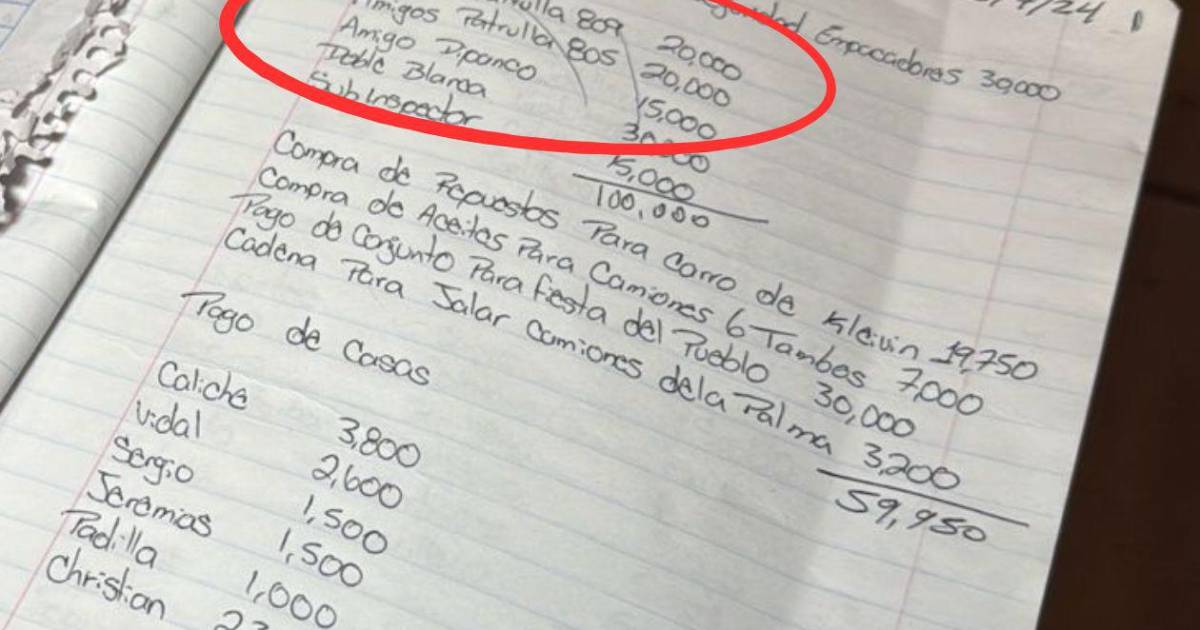 /24
Empacadores 30,000
Patrulla 809 20,000
Amigos Patrulla 805 20,000
Amigo Dipanco 15,000
Doble Blanca
Sub Inspector 15,000
100,000
Compra de Repuestos Para Carro de Kleivin 19,750
Compra de Aceites Para Camiones 6 Tambos 7,000
Pago de Conjunto Para fiesta del Pueblo 30,000
Cadena Para Jalar Camiones dela Palma 3,200
59,950
Pago de Casas
Caliche 3,800
Vidal 2,600
Sergio 1,500
Jeremias 1,500
Padilla 1,000
Christian